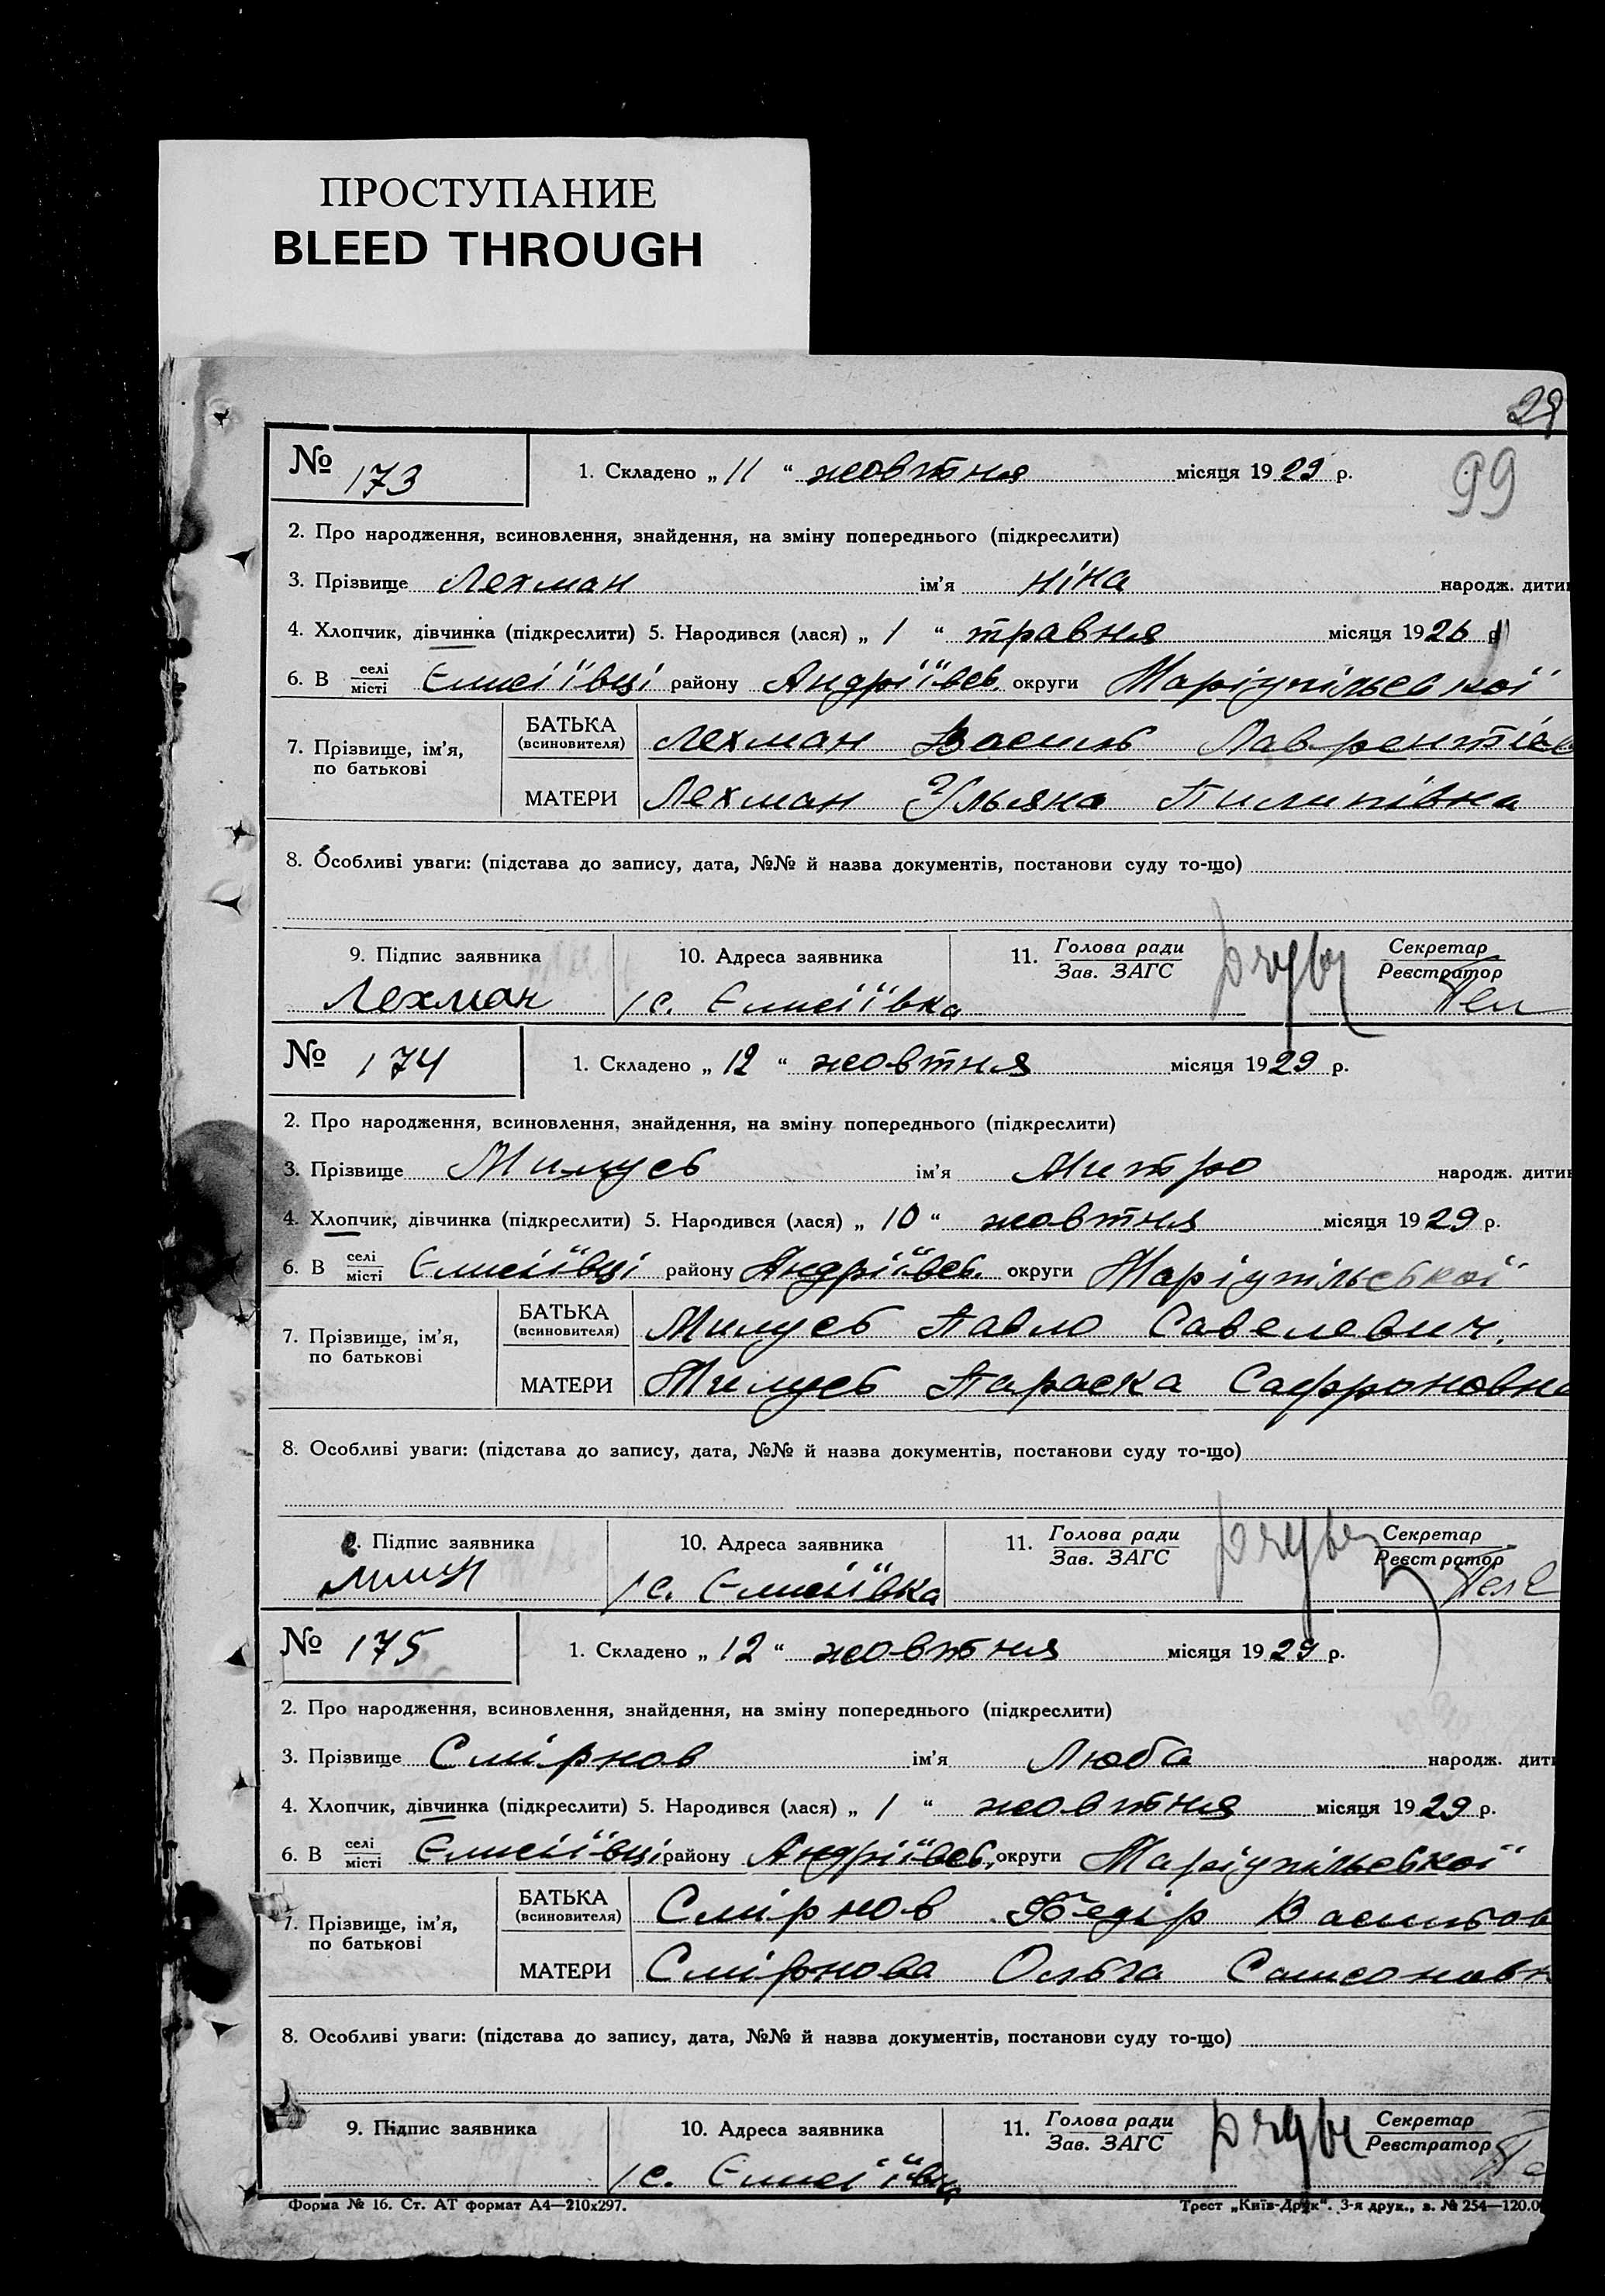 ПРОСТУПАНИЕ
BLEED THROUGH
29
99
№ 173 1. Складено „ 11 “ жовтня місяця 1929 р.
2. Про народження, всиновлення, знайдення, на зміну попереднього (підкреслити)
3. Прізвище Лехман ім’я Ніна народж. дити
4. Хлопчик, дівчинка (підкреслити) 5. Народився (лася) „ 1 “ травня місяця 1926 р
6. В селі/місті Єлисіївці району Андріївсь. округи Маріупільської
7. Прізвище, ім’я, по батькові
БАТЬКА (всиновителя) Лехман Василь Лаврентіев
МАТЕРИ Лехман Ульяна Пилипівна
8. Особливі уваги: (підстава до запису, дата, №№ й назва документів, постанови суду то-що)
9. Підпис заявника 10. Адреса заявника 11. Голова ради/Зав. ЗАГС Секретар/Реєстратор
Лехман с. Єлисіївка
№ 174 1. Складено „ 12 “ жовтня місяця 1929 р.
2. Про народження, всиновлення, знайдення, на зміну попереднього (підкреслити)
3. Прізвище Милусь ім’я Митро народж. дити
4. Хлопчик, дівчинка (підкреслити) 5. Народився (лася) „ 10 “ жовтня місяця 1929 р.
6. В селі/місті Єлисіївці району Андріївсь. округи Маріупільської
7. Прізвище, ім’я, по батькові
БАТЬКА (всиновителя) Милусь Павло Савелевич.
МАТЕРИ Милусь Параска Сафроновна
8. Особливі уваги: (підстава до запису, дата, №№ й назва документів, постанови суду то-що)
9. Підпис заявника 10. Адреса заявника 11. Голова ради/Зав. ЗАГС Секретар/Реєстратор
с. Єлисіївка
№ 175 1. Складено „ 12 “ жовтня місяця 1929 р.
2. Про народження, всиновлення, знайдення, на зміну попереднього (підкреслити)
3. Прізвище Смірнов ім’я Люба народж. дит
4. Хлопчик, дівчинка (підкреслити) 5. Народився (лася) „ 1 “ жовтня місяця 1929 р.
6. В селі/місті Єлисіївці району Андріївсь. округи Маріупільської
7. Прізвище, ім’я, по батькові
БАТЬКА (всиновителя) Смірнов Федір Васильов
МАТЕРИ Смірнова Ольга Самсоновн
8. Особливі уваги: (підстава до запису, дата, №№ й назва документів, постанови суду то-що)
9. Підпис заявника 10. Адреса заявника 11. Голова ради/Зав. ЗАГС Секретар/Реєстратор
с. Єлисіївц
Форма № 16. Ст. АТ формат А4—210х297. Трест „Київ-Друк“. 3-я друк., з. № 254—120.0